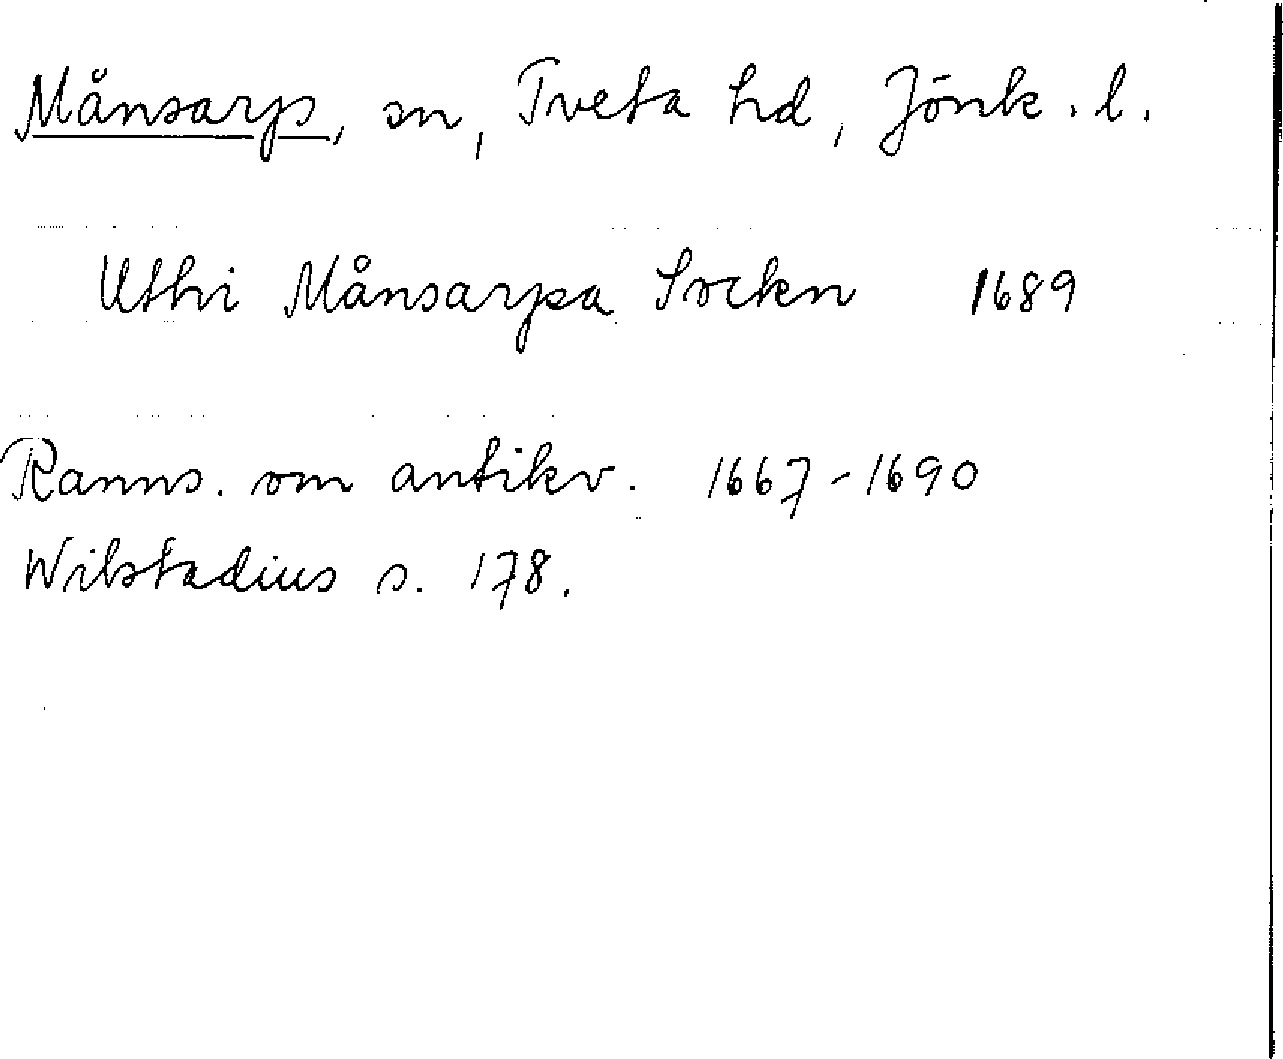 Månsarp, sn, Tveta hd, Jönk. l.
Uthi Månsarpa Sockn 1689
Ranns. om antikv. 1667-1690
Wilstadius s. 178.